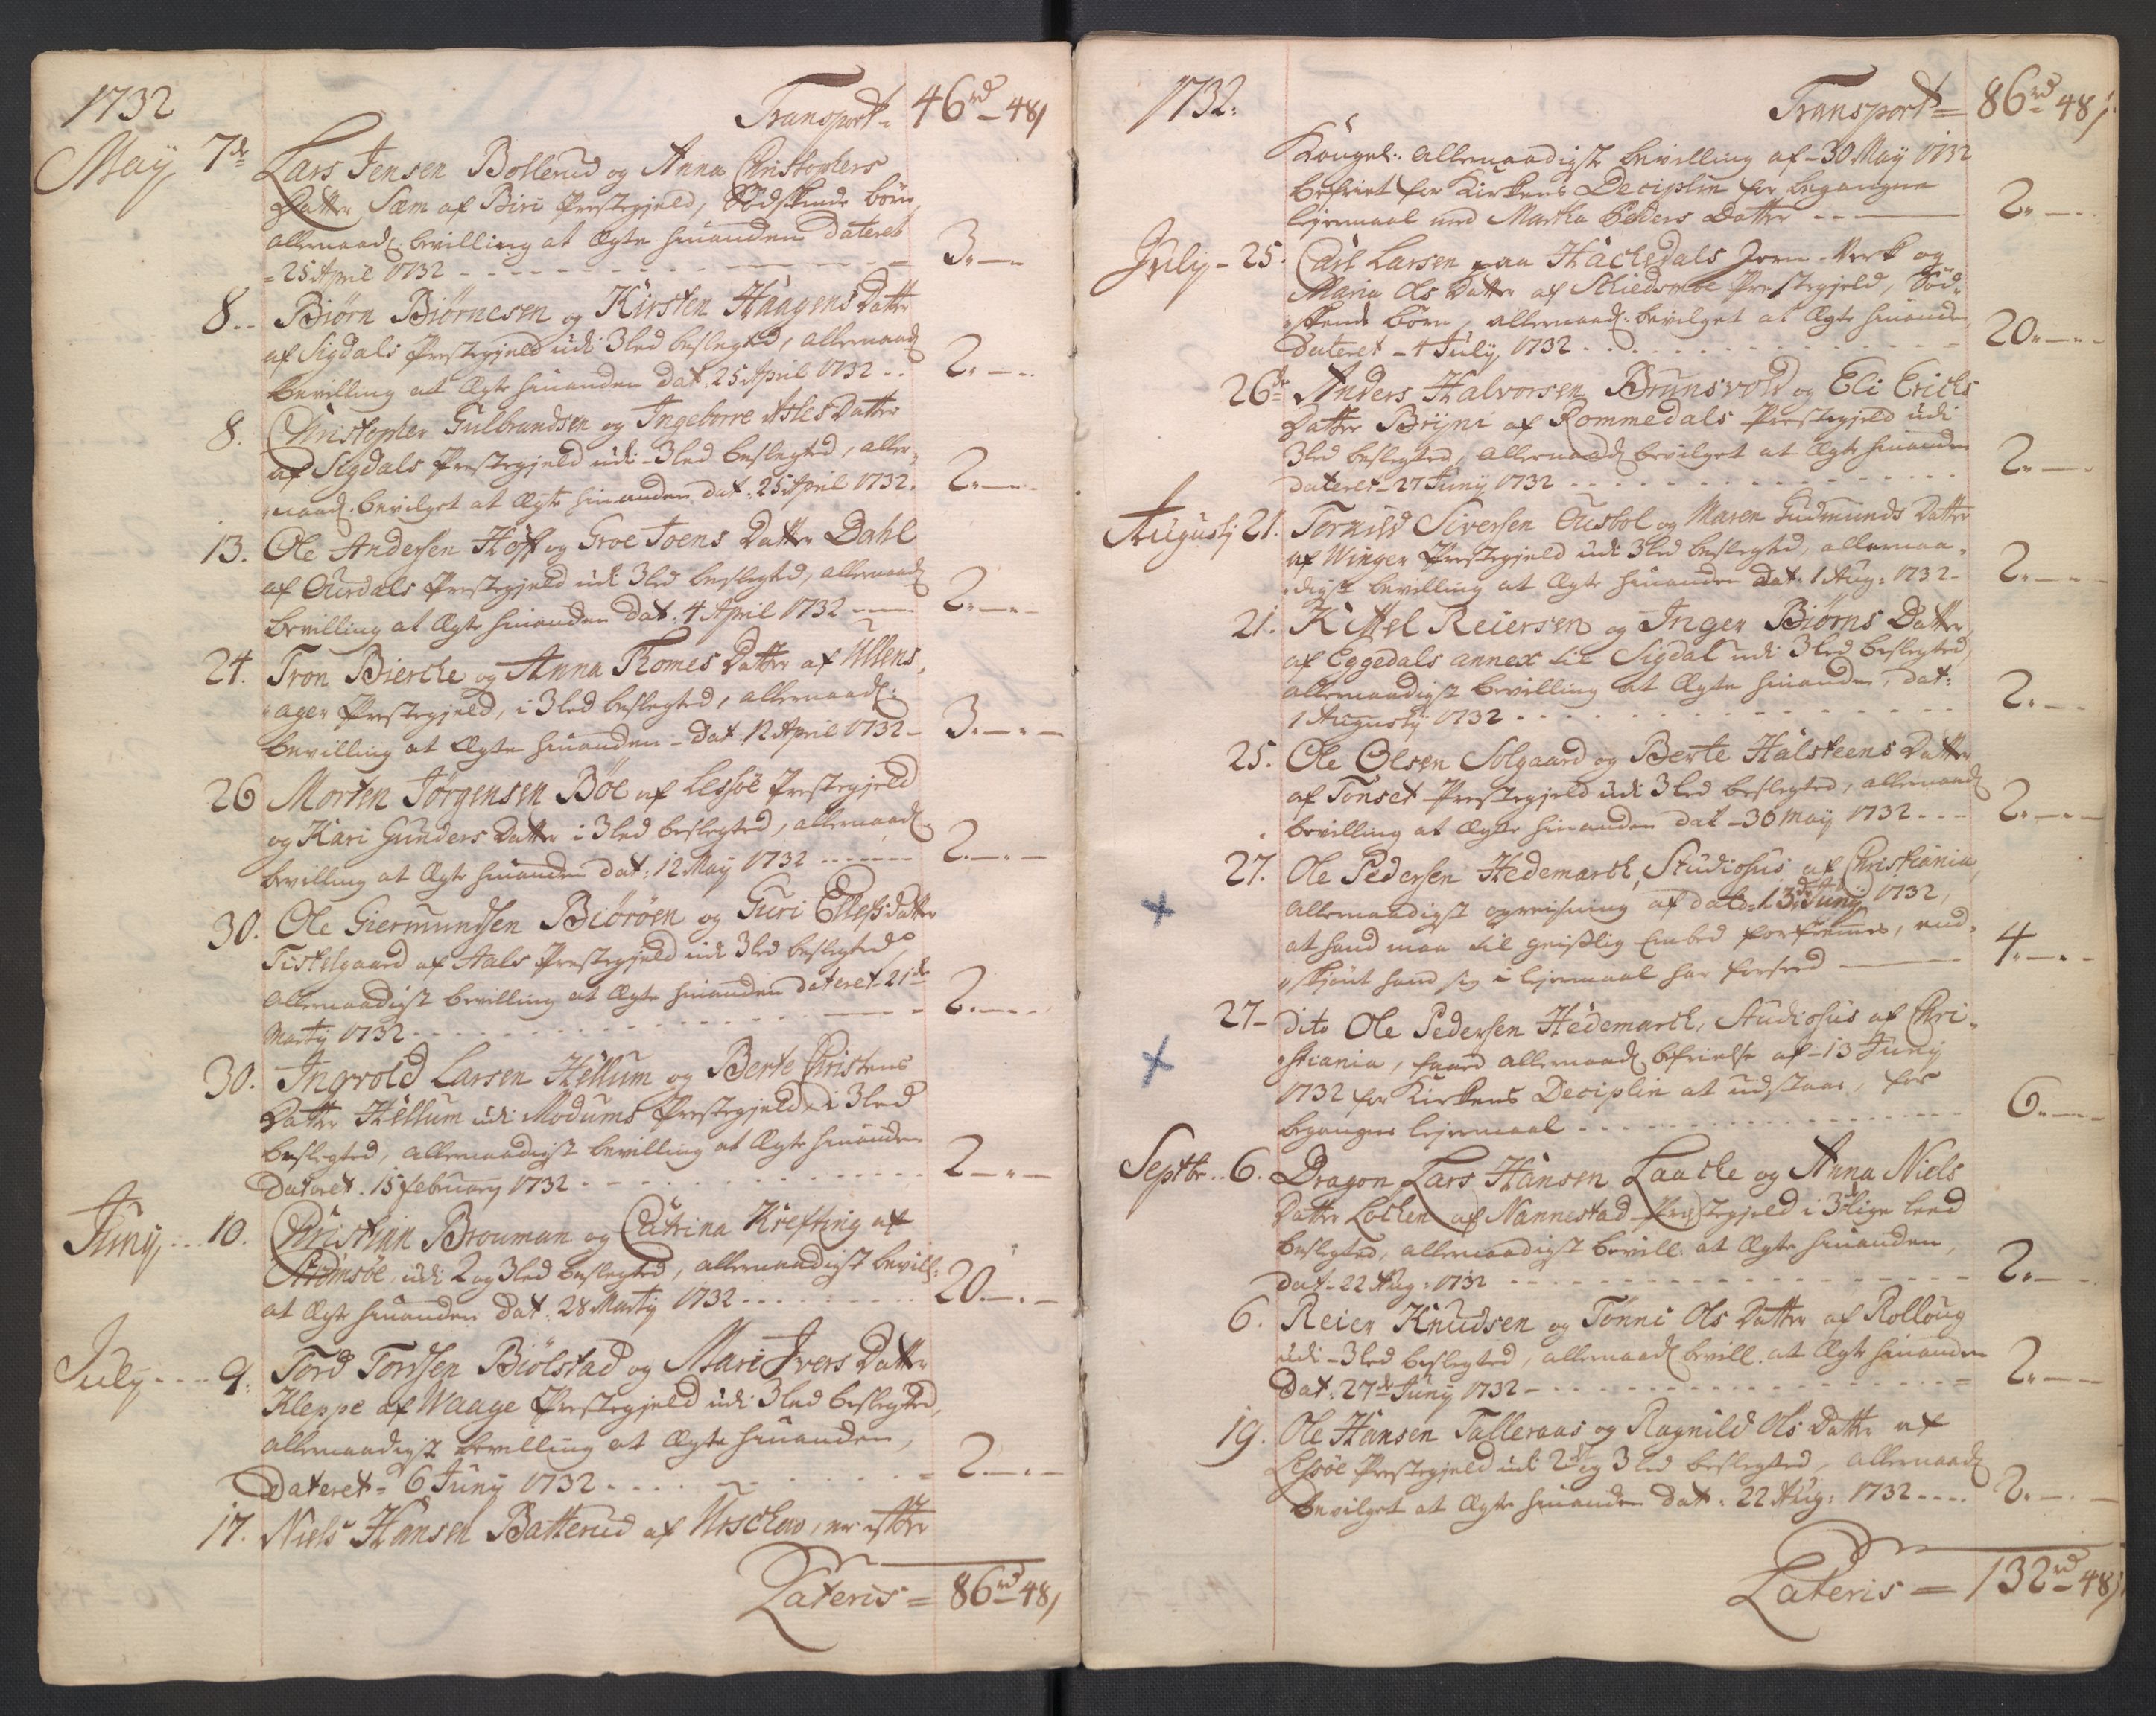 1732
Transport = 46rd 48s
May 7de Lars Jensen Bollerud og Anna Christophers
Datter Sæm af Biri Prestegjeld, Sødskende børn,
allernaad: bevilling at Ægte hinanden dateret
25 April 1732 3.—
8. Biørn Biørnesen og Kirsten Haagens Datter
af Sigdals Prestegjeld udi 3 led beslegted, allernaad:
bevilling at Ægte hinanden dat. 25 April 1732 2.—
8. Christopher Gulbrandsen og Ingeborre Asles Datter
af Sigdals Prestegjeld udi 3 led beslegted, aller-
naad. bevilget at Ægte hinanden dat. 25 April 1732. 2.—
13. Ole Andersen Hoff og Groe Joens Datter Dahl
af Ourdals Prestegjeld udi 3 led beslegted, allernaad:
bevilling at Ægte hinanden dat. 4 April 1732 2.—
24. Tron Bierche og Anna Thomes Datter af Ullens-
ager Prestegjeld, i 3 led beslegted, allernaad:
bevilling at Ægte hinanden dat. 12 April 1732 3.—
26 Morten Jørgensen Böe af Lessöe Prestegjeld
og Kari Gunders Datter i 3 led beslegted, allernaad:
bevilling at Ægte hinanden dat: 12 May 1732 2.—
30. Ole Giermundsen Biöröen og Guri Ellefs datter
Tistelgaard af Aals Prestegjeld udi 3 led beslegted,
allernaadigst bevilling at Ægte hinanden dateret 21de
Martij 1732 2.—
30. Ingvold Larsen Hellum og Berte Christens
Datter Hellum udi Modums Prestegjeld, i 3 led
beslegted, allernaadigst bevilling at Ægte hinanden
Dateret. 15 february 1732 2.—
Junij 10. Christian Brouman og Catrina Krefting af
Strömsöe, udi 2 og 3 led beslegted, allernaadigst bevill:
at Ægte hinanden dat. 28 Martij 1732 20.—
July 9. Tord Tordsen Biölstad og Mari Ivers Datter
Kleppe af Waage Prestegjeld udi 3 led beslegted,
allernaadigst bevilling at Ægte hinanden,
Dateret 6 Junij 1732 2.—
17. Niels Hansen Batterud af Urschow, er efter
Lateris = 86rd 48s
1732.
Transport = 86rd 48s.
Kongel: allernaadigste bevilling af 30 May 1732
befriet for Kirkens Deciplin for begangne
lejermaal med Martha Peders Datter 2.—
July 25. Carl Larsen paa Hackedals Jern-Verk og
Maria Ols Datter af Schiedsmoe Prestegjeld, Sød-
skende børn, allernaad: bevilget at Ægte hinanden,
Dateret 4 July 1732 20.—
26de Anders Halvorsen Brunsvold og Eli Erichs
Datter Brÿni af Rommedals Prestegjeld udi
3 led beslegted, allernaad: bevilget at Ægte hinanden
dateret 27 Junij 1732 2.—
Augustij 21. Tormod Siversen Ousbol og Maren Gudmunds Datter
af Winger Prestegjeld udi 3 led beslegted, allernaa-
digst bevilling at Ægte hinanden dat. 1 Aug: 1732 2.—
21. Kittel Reiersen og Inger Biörns Datter
af Eggedals annex til Sigdal udi 3 led beslegted,
allernaadigst bevilling at Ægte hinanden, dat:
1 Augustij 1732 2.—
25. Ole Olsen Solgaard og Berte Halsteens Datter
af Tönset Prestegjeld udi 3 led beslegted, allernaad:
bevilling at Ægte hinanden dat 30 May 1732 2.—
27. Ole Pedersen Hedemarch, Studiosus af Christiania,
allernaadigst opreisning af dato 13de Junij 1732,
at hand maa til geistlig Embed forfremmes, uand-
skjönt hand sig i lejermaal har forseed 4.—
27 dito Ole Pedersen Hedemarch, Studiosus af Chri-
stiania, faaed allernaad: befrielse af 13 Junij
1732 for Kirkens Deciplin at udstaae, for
begangne lejermaal 6.—
Septbr. 6. Dragon Lars Hansen Laache og Anna Niels
Datter Lochen af Nannestad Prestegjeld i 3 lige leed
beslegted, allernaadigst bevill: at Ægte hinanden,
dat. 22 Aug: 1732 2.—
6. Reier Knudsen og Tönni Ols Datter af Rolloug
udi 3 led beslegted, allernaad: bevill. at Ægte hinanden
Dat: 27de Junij 1732 2.—
19. Ole Hansen Talleraas og Ragnild Ols Datter af
Lessöe Prestegjeld udi 2 og 3 led beslegted, allernaad:
bevilget at Ægte hinanden dat. 22 Aug: 1732 2.—
Lateris = 132rd 48s